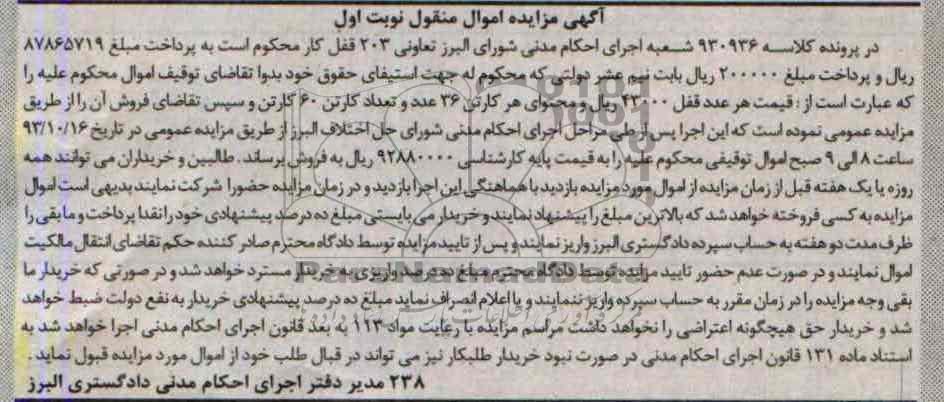 آگهی مزایده اموال منقول نوبت اول
در پرونده کلاسه ۹۳۰۹۳۶ شعبه اجرای احکام مدنی شورای البرز تعاونی ۲۰۳ قفل کار محکوم است به پرداخت مبلغ ۸۷۸۶۵۷۱۹
ریال و پرداخت مبلغ ۲۰۰۰۰۰۰ ریال بابت نیم عشر دولتی که محکوم له جهت استیفای حقوق خود بدوا تقاضای توقیف اموال محکوم علیه را
که عبارت است از : قیمت هر عدد قفل ۴۳۰۰۰ ریال و محتوای هر کارتن ۳۶ عدد و تعداد کارتن ۶۰ کارتن و سپس تقاضای فروش آن را از طریق
مزایده عمومی نموده است که این اجرا پس از طی مراحل اجرای احکام مدنی شورای حل اختلاف البرز از طریق مزایده عمومی در تاریخ ۹۳/۱۰/۱۶
ساعت ۸ الی ۹ صبح اموال توقیفی محکوم علیه را به قیمت پایه کارشناسی ۹۲۸۸۰۰۰۰ ریال به فروش برساند . طالبین و خریداران می توانند همه
روزه یا یک هفته قبل از زمان مزایده از اموال مورد مزایده بازدید با هماهنگی این اجرا بازدید و در زمان مزایده حضورا شرکت نمایند بدیهی است اموال
مزایده به کسی فروخته خواهد شد که بالاترین مبلغ را پیشنهاد نمایند و خریدار می بایستی مبلغ ده درصد پیشنهادی خود را نقدا پرداخت و ما بقی را
ظرف مدت دو هفته به حساب سپرده دادگستری البرز واریز نمایند و پس از تایید مزایده توسط دادگاه محترم صادر کننده حکم تقاضای انتقال مالکیت
اموال نمایند و در صورت عدم حضور تایید مزایده توسط دادگاه محترم مبلغ ده درصد واریزی به خریدار مسترد خواهد شد و در صورتی که خریدار ما
بقی وجه مزایده را در زمان مقرر به حساب سپرده واریز ننمایند و یا اعلام انصراف نماید مبلغ ده درصد پیشنهادی خریدار به نفع دولت ضبط خواهد
شد و خریدار حق هیچگونه اعتراضی را نخواهد داشت مراسم مزایده با رعایت مواد ۱۱۳ به بعد قانون اجرای احکام مدنی اجرا خواهد شد به
استناد ماده ۱۳۱ قانون اجرای احکام مدنی در صورت نبود خریدار طلبکار نیز می تواند در قبال طلب خود از اموال مورد مزایده قبول نماید .
۲۳۸ مدیر دفتر اجرای احکام مدنی دادگستری البرز